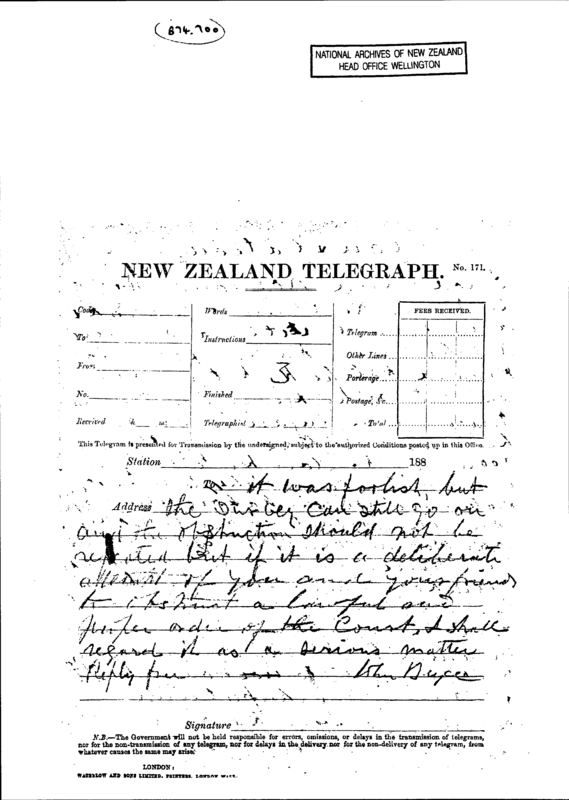 (874.700)
NATIONAL ARCHIVES OF NEW ZEALAND
HEAD OFFICE WELLINGTON
NEW ZEALAND TELEGRAPH. No. 171.
Code
Words
FEES RECEIVED.
To
Instructions
Telegram
Other Lines
From
Porterage
No.
Finished
Postage, &c.
Received h m
Telegraphist
Total
This Telegram is presented for Transmission by the undersigned, subject to the authorized Conditions posted up in this Office.
Station 188
To it was foolish, but
Address the Survey can still go on
and the obstruction should not be
repeated but if it is a deliberate
attempt of you and your friends
to obstruct a lawful and
proper order of the Court, I shall
regard it as a serious matter
Reply free John Bryce
Signature
N.B.—The Government will not be held responsible for errors, omissions, or delays in the transmission of telegrams,
nor for the non-transmission of any telegram, nor for delays in the delivery nor for the non-delivery of any telegram, from
whatever causes the same may arise.
LONDON:
WATERLOW AND SONS LIMITED, PRINTERS, LONDON WALL.